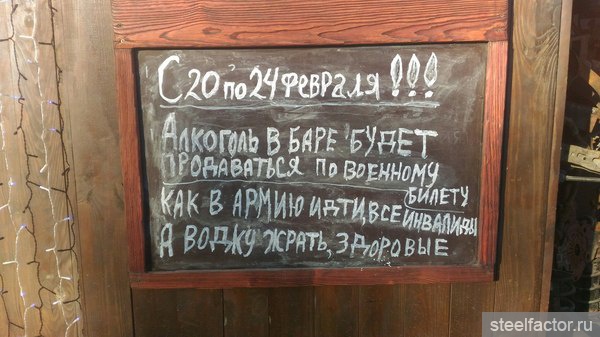 С 20 по 24 февраля !!!
Алкоголь в баре будет
продаваться по военному
билету
как в армию идти, все инвалиды
а воджу жрать, здоровые
steelfactor.ru